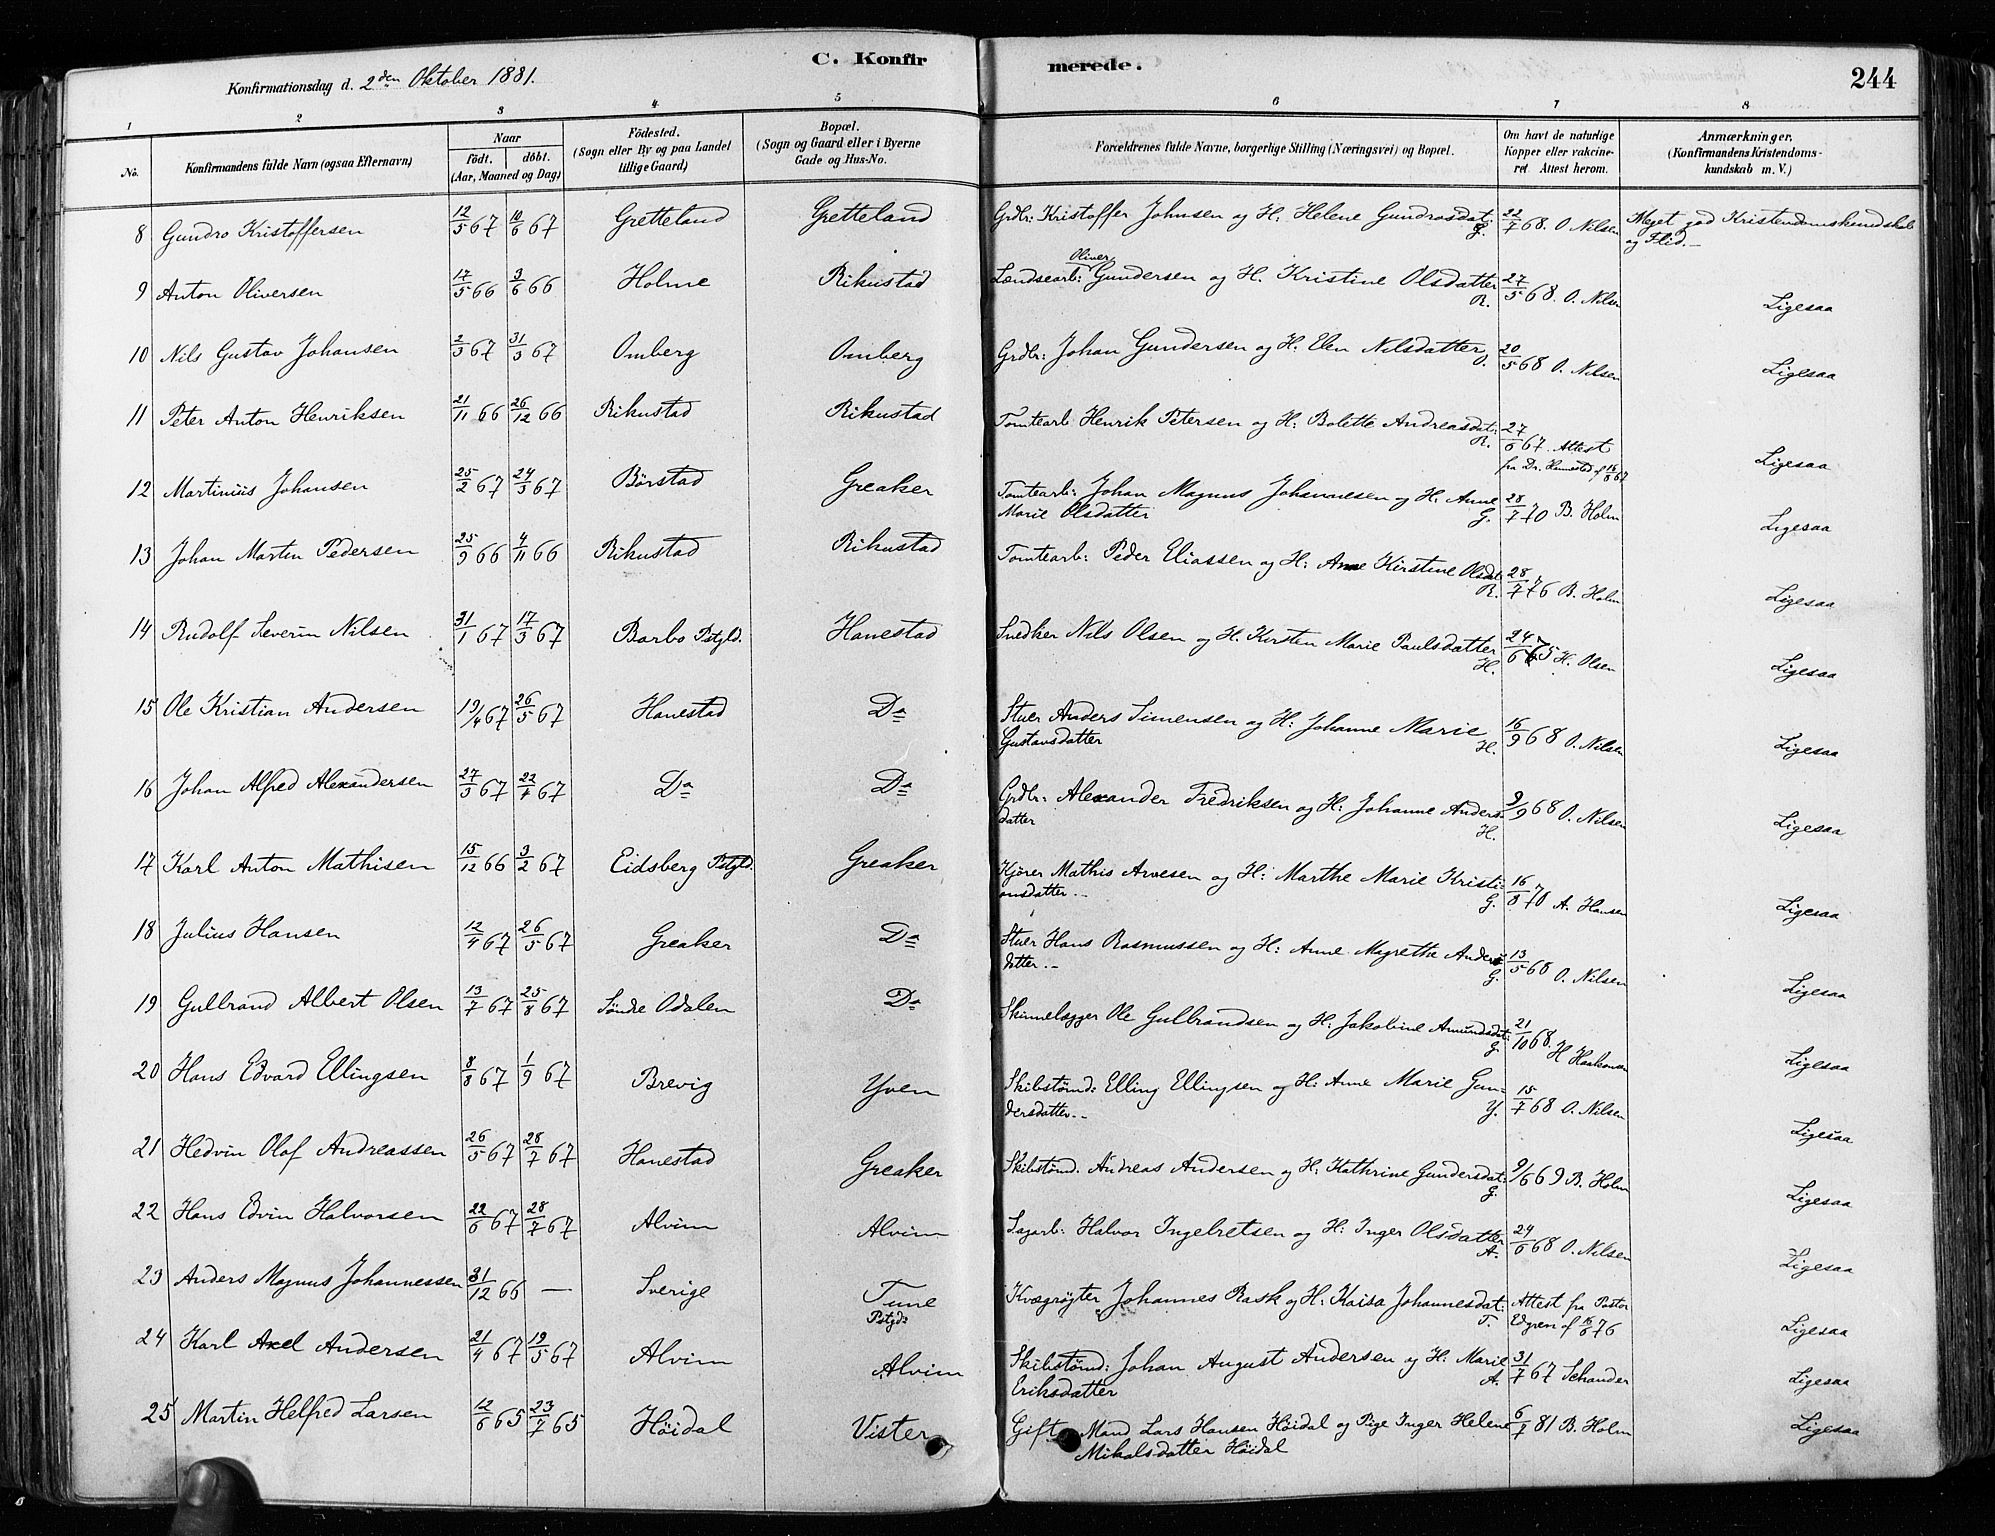 C. Konfirmerede.
244
Konfirmationsdag d. 2den Oktober 1881.
1 2 3 4 5 6 7 8
No. Konfirmandens fulde Navn (ogsaa Efternavn) Naar födt. döbt. (Aar, Maaned og Dag) Födested. (Sogn eller By og paa Landet tillige Gaard) Bopæl. (Sogn og Gaard eller i Byerne Gade og Hus-No. Forældrenes fulde Navne, borgerlige Stilling (Næringsvei) og Bopæl. Om havt de naturlige Kopper eller vakcineret. Attest herom. Anmærkninger. (Konfirmandens Kristendomskundskab m. V.)
8 Gundro Kristoffersen 12/5 67 10/6 67 Gretteland Gretteland Grdbr: Kristoffer Johnsen og H: Helene Gundrosdat: G. 22/7 68. O. Nilsen Meget god Kristendomskundskab
og Flid.-
9 Anton Oliversen 17/5 66 3/6 66 Holme Rikustad Lændsearb: Oliver Gundersen og H. Kristine Olsdatter R. 27/5 68. O. Nilsen Ligesaa
10 Nils Gustav Johansen 2/3 67 31/3 67 Omberg Omberg Grdbr: Johan Gundersen og H: Elen Nilsdatter O. 20/5 68 O. Nilsen Ligesaa
11 Peter Anton Henriksen 21/11 66 26/12 66 Rikustad Rikustad Tomtearb: Henrik Petersen og H: Bolette Andreasdat: R. 27/6 67. Attest Ligesaa
fra Dr. Hannestad af 16/8 67
12 Martinius Johansen 25/2 67 24/3 67 Börstad Greaker Tomtearb: Johan Magnus Johannesen og H: Anne
Marie Olsdatter G. 28/7 70 B. Holm Ligesaa
13 Johan Martin Pedersen 25/9 66 4/11 66 Rikustad Rikustad Tomtearb: Peder Eliassen og H: Anne Kirstine Olsdat: R. 28/7 76 B. Holm Ligesaa
14 Rudolf Severin Nilsen 31/1 67 17/3 67 Barbo Pstgld. Hanestad Snedker Nils Olsen og H. Kirsten Marie Paulsdatter H. 24/6 75 H. Olsen Ligesaa
15 Ole Kristian Andersen 19/4 67 26/5 67 Hanestad Do Stuer Anders Simensen og H: Johanne Marie
Gustavsdatter H. 16/9 68 O. Nilsen Ligesaa
16 Johan Alfred Alexandersen 27/3 67 22/4 67 Do Do Grdbr: Alexander Fredriksen og H: Johanne Anders-
datter H. 9/9 68 O. Nilsen Ligesaa
17 Karl Anton Mathisen 15/12 66 3/2 67 Eidsberg Pstgld. Greaker Kjörer Mathis Arvesen og H: Marthe Marie Kristi-
ansdatter.- G. 16/8 70 A. Hansen Ligesaa
18 Julius Hansen 12/4 67 26/5 67 Greaker Do Stuer Hans Rasmussen og H: Anne Magrethe Anders-
datter.- G. 13/5 68 O. Nilsen Ligesaa
19 Gulbrand Albert Olsen 13/7 67 25/8 67 Söndre Odalen Do Skinnelægger Ole Gulbrandsen og H: Jakobine Amundsdat: G. 21/10 68. H Haakonsen Ligesaa
20 Hans Edvard Ellingsen 8/8 67 1/9 67 Brevig Yven Skibstømd: Elling Ellingsen og H: Anne Marie Gun-
dersdatter.- Y. 15/7 68 O. Nilsen Ligesaa
21 Hedvin Olaf Andreassen 26/5 67 28/7 67 Hanestad Greaker Skibstømd. Andreas Andersen og H: Kathrine Gundersdat: G. 9/6 69 B. Holm Ligesaa
22 Hans Edvin Halvorsen 22/6 67 28/7 67 Alvim Alvim Sagarb: Halvor Ingebretsen og H: Inger Olsdatter A. 24/6 68 O. Nilsen Ligesaa
23 Anders Magnus Johannessen 31/12 66 — Sverige Tune Pstgd: Kvægrøgter Johannes Rask og H: Kaisa Johannesdat: T. Attest fra Pastor
Edgren af 16/8 76 Ligesaa
24 Karl Axel Andersen 21/4 67 19/5 67 Alvim Alvim Skibstømd: Johan August Andersen og H: Marie
Eriksdatter A. 31/7 67 Schander Ligesaa
25 Martin Helfred Larsen 12/6 65 23/7 65 Höidal Vister Gift Mand Lars Hansen Höidal og Pige Inger Helene 6/7 81 B. Holm Ligesaa
Mikalsdatter Höidal